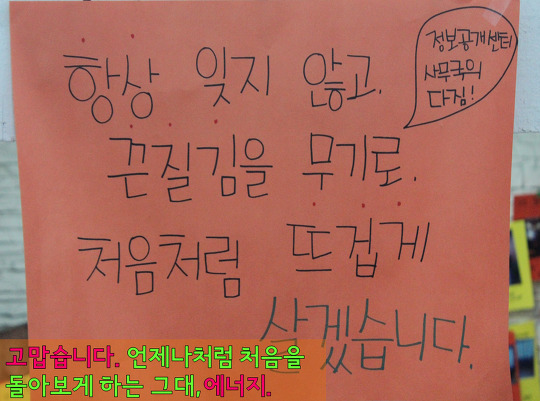 항상 잊지 않고.
정보공개센터
사무국의
다짐!
끈질김을 무기로.
처음처럼 뜨겁게
살겠습니다.
고맙습니다. 언제나처럼 처음을
돌아보게 하는 그대, 에너지.